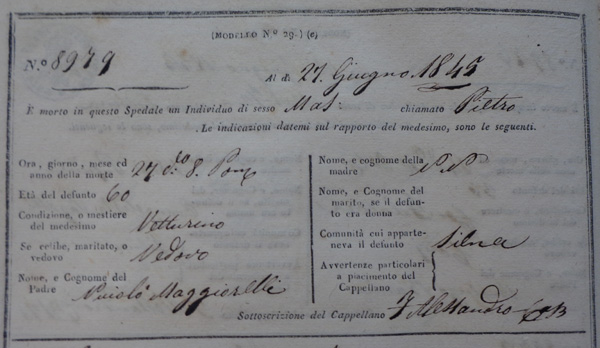 (MODELLO N.º 29.) (e)
N.º 8979
Al dì 27. Giugno. 1845
È morto in questo Spedale un Individuo di sesso Mas: chiamato Pietro.
Le indicazioni datemi sul rapporto del medesimo, sono le seguenti.
Ora, giorno, mese ed
anno della morte 27 d.to 8.
Età del defunto 60
Condizione, o mestiere
del medesimo Vetturino
Se celibe, maritato, o
vedovo Vedovo
Nome, e Cognome del
Padre Maggiorelli
Nome, e cognome della
madre N. N.
Nome, e Cognome del
marito, se il defun-
to era donna
Comunità cui apparte-
neva il defunto
Avvertenze particolari
a piacimento del
Cappellano
Sottoscrizione del Cappellano F Alessandro